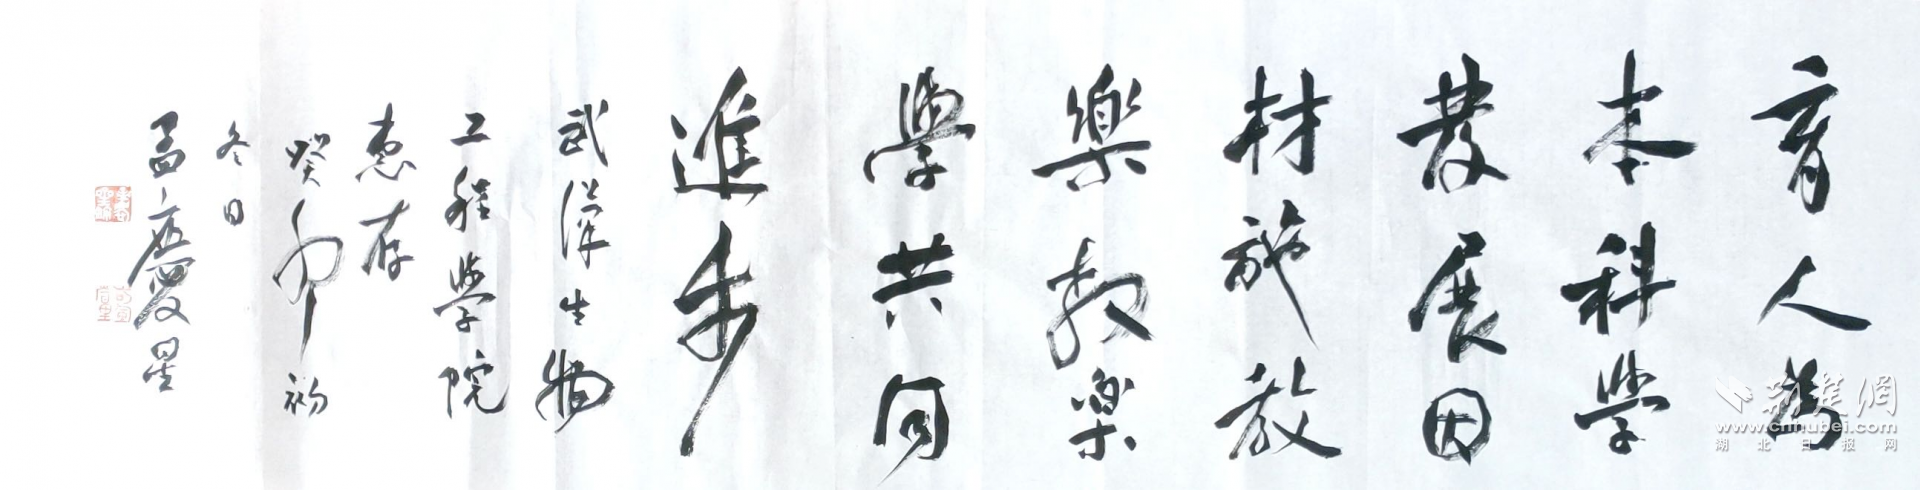 育人為
本科學
發展因
材施教
樂教樂
學共同
進步
武漢生物
工程學院
惠存
癸卯初
冬日
孟慶星
荆楚網
www.cnhubei.com
湖北日报网